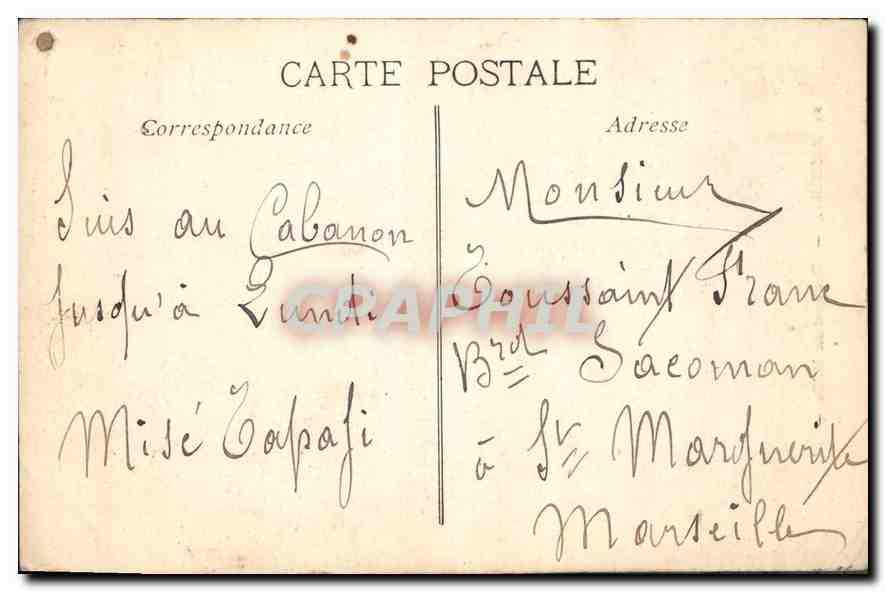 CARTE POSTALE
Correspondance
Suis au Cabanon
Jusqu'à Lundi
Misé Tapasi
Adresse
Monsieur
Toussaint Franc
Brd Sacoman
à St Marguerite
Marseille
CPAPHIL